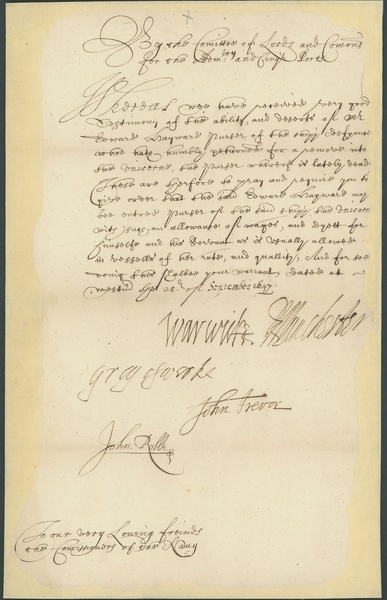 By the Comittee of Lords and Comons
for the Adm:ty and Cinq Ports
Whereas wee have received very good
Testimony of the ability, and deserts of Mr
Edward Hayward Purser of the shipp Defyance
who hath humbly petitioned for a remove into
the Unicorne, the Purser whereof is lately dead
These are therfore to pray and require you to
give order that the said Edward Hayward may
bee entred Purser of the said shipp the Unicorn
with such an allowance of wages, and dyett for
himselfe and his Servant as is usually allowed
in vessells of her rate, and quallity, And for soe
doing this shalbee your warrant, dated at
Westmr the 28th of September 1647
Warwick Manchester
Gray of Warke
John Trevor
John Rolle
To our very Loving freinds
the Comissioners of the Navy